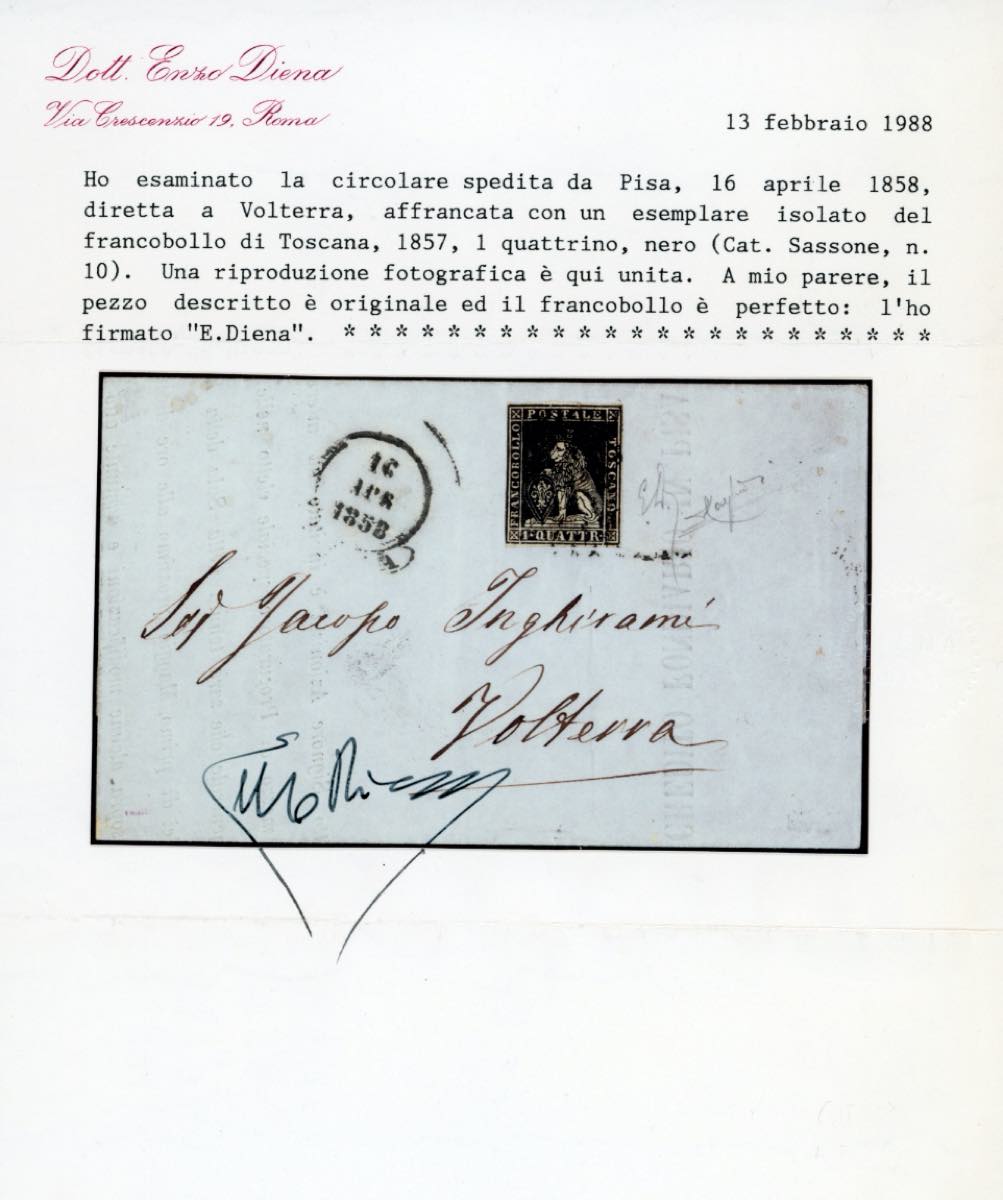 Dott. Enzo Diena
Via Crescenzio 19, Roma
13 febbraio 1988
Ho esaminato la circolare spedita da Pisa, 16 aprile 1858,
diretta a Volterra, affrancata con un esemplare isolato del
francobollo di Toscana, 1857, 1 quattrino, nero (Cat. Sassone, n.
10). Una riproduzione fotografica è qui unita. A mio parere, il
pezzo descritto è originale ed il francobollo è perfetto: l'ho
firmato "E.Diena". * * * * * * * * * * * * * * * * * * * * * * *
16
APR
1858
FRANCOBOLLO
POSTALE
TOSCANO
1·QUATTR·
Jacopo Inghirami
Volterra